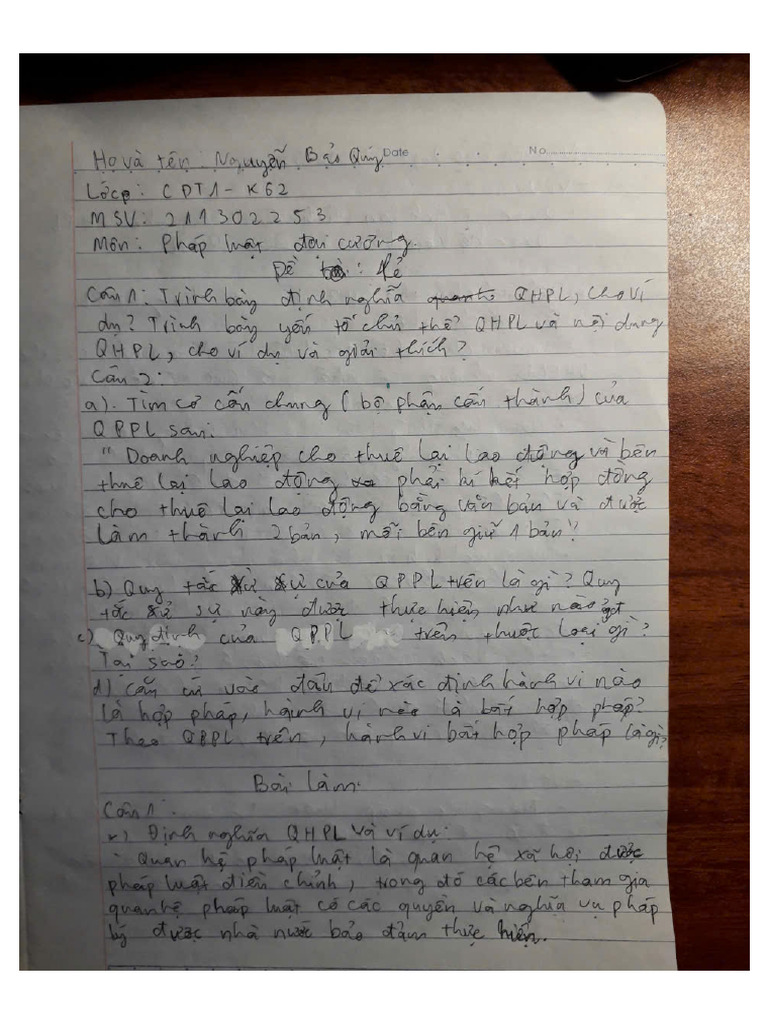 Họ và tên: Nguyễn Bảo Quý Date No.
Lớp: CDT1 - K62
MSV: 211302253
Môn: Pháp luật đại cương.
Đề : lẻ
Câu 1: Trình bày định nghĩa QHPL, cho ví
dụ? Trình bày yếu tố chủ thể QHPL và nội dung
QHPL, cho ví dụ và giải thích?
Câu 2:
a). Tìm cơ cấu chung (bộ phận cấu thành) của
QPPL sau:
"Doanh nghiệp cho thuê lại lao động và bên
thuê lại lao động phải kí kết hợp đồng
cho thuê lại lao động bằng văn bản và được
làm thành 2 bản, mỗi bên giữ 1 bản"
b) Quy tắc xử sự của QPPL trên là gì? Quy
tắc xử sự này được thực hiện như nào?
c) Quy định của QPPL trên thuộc loại gì?
Tại sao?
d) Căn cứ vào đâu để xác định hành vi nào
là hợp pháp, hành vi nào là bất hợp pháp?
Theo QPPL trên, hành vi bất hợp pháp là gì?
Bài làm:
Câu 1:
*) Định nghĩa QHPL và ví dụ:
- Quan hệ pháp luật là quan hệ xã hội được
pháp luật điều chỉnh, trong đó các bên tham gia
quan hệ pháp luật có các quyền và nghĩa vụ pháp
lý được nhà nước bảo đảm thực hiện.